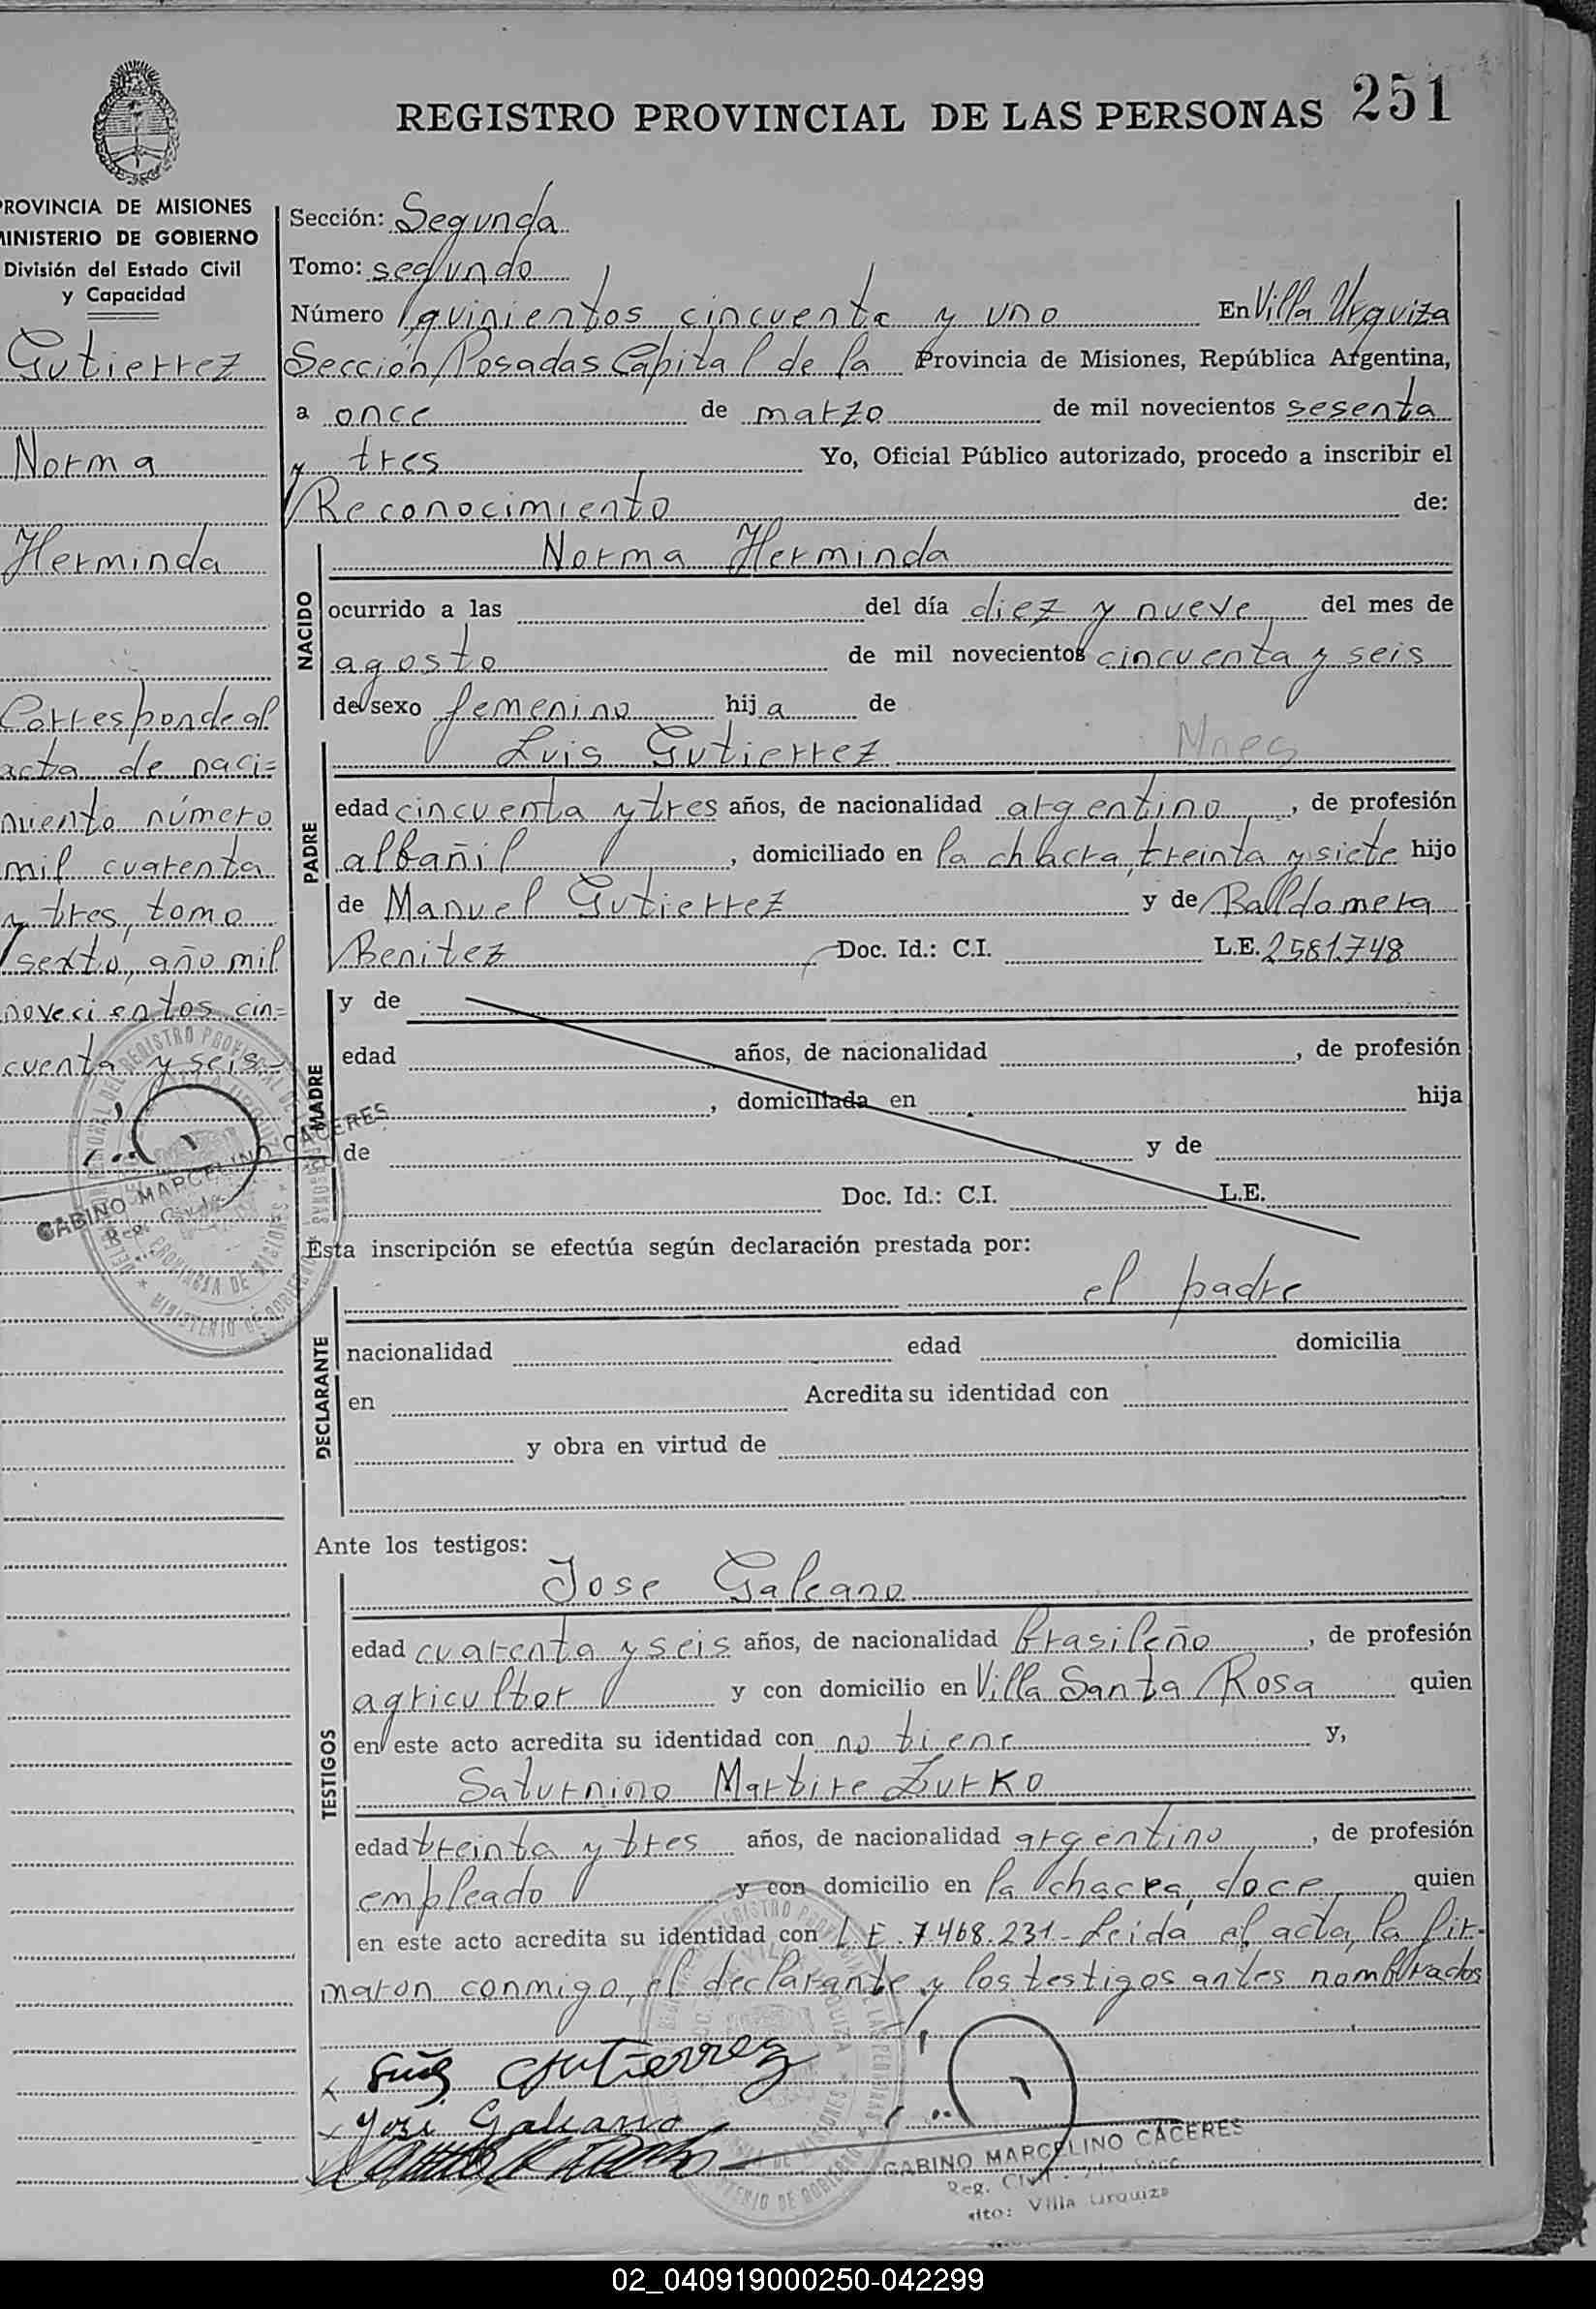 REGISTRO PROVINCIAL DE LAS PERSONAS 251
PROVINCIA DE MISIONES
MINISTERIO DE GOBIERNO
División del Estado Civil
y Capacidad
Gutierrez
Norma
Herminda
Corresponde al
acta de naci=
miento número
mil cuarenta
y tres, tomo
sexto, año mil
novecientos cin=
cuenta y seis
GABINO MARCELINO CACERES
Sección: Segunda
Tomo: segundo
Número quinientos cincuenta y uno En Villa Urquiza
Sección Posadas Capital de la Provincia de Misiones, República Argentina,
a once de marzo de mil novecientos sesenta
y tres Yo, Oficial Público autorizado, procedo a inscribir el
Reconocimiento de:
NACIDO
Norma Herminda
ocurrido a las del día diez y nueve del mes de
agosto de mil novecientos cincuenta y seis
de sexo femenino hija de
PADRE
Luis Gutierrez
edad cincuenta y tres años, de nacionalidad argentino, de profesión
albañil, domiciliado en la chacra, treinta y siete hijo
de Manuel Gutierrez y de Balldomera
Benitez Doc. Id.: C.I. L.E. 2581.748
MADRE
y de
edad años, de nacionalidad , de profesión
, domiciliada en hija
de y de
Doc. Id.: C.I. L.E.
Esta inscripción se efectúa según declaración prestada por:
DECLARANTE
el padre
nacionalidad edad domicilia
en Acredita su identidad con
y obra en virtud de
Ante los testigos:
TESTIGOS
Jose Galeano
edad cuarenta y seis años, de nacionalidad brasileño, de profesión
agricultor y con domicilio en Villa Santa Rosa quien
en este acto acredita su identidad con no tiene y,
Saturnino Martire Zurko
edad treinta y tres años, de nacionalidad argentino, de profesión
empleado y con domicilio en la chacra, doce quien
en este acto acredita su identidad con L.E. 7.468.231- Leida el acta, la fir-
maron conmigo, el declarante y los testigos antes nombrados
x Luis Gutierrez
x José Galeano
GABINO MARCELINO CACERES
Villa Urquiza
02_040919000250-042299